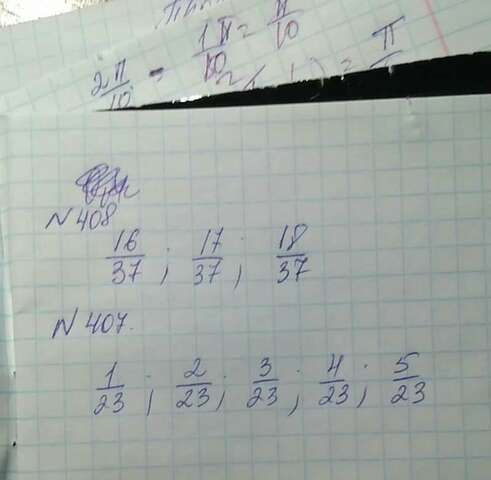 2π/10 - 1π/10 = π/10
N 408
16/37; 17/37; 18/37
N 407.
1/23; 2/23; 3/23; 4/23; 5/23